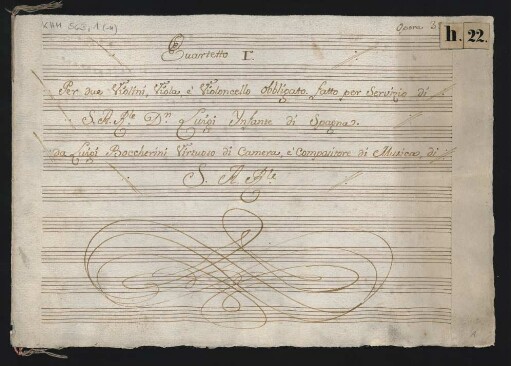 Opera 3
h. 22.
Quartetto I.
Per due Violini, Viola è Violoncello obbligato fatto per Servizio di
S. A. Rle. Dn Luigi Infante di Spagna.
Da Luigi Boccherini Virtuoso di Camera, è Compositore di Musica, di
S. A. Rle.